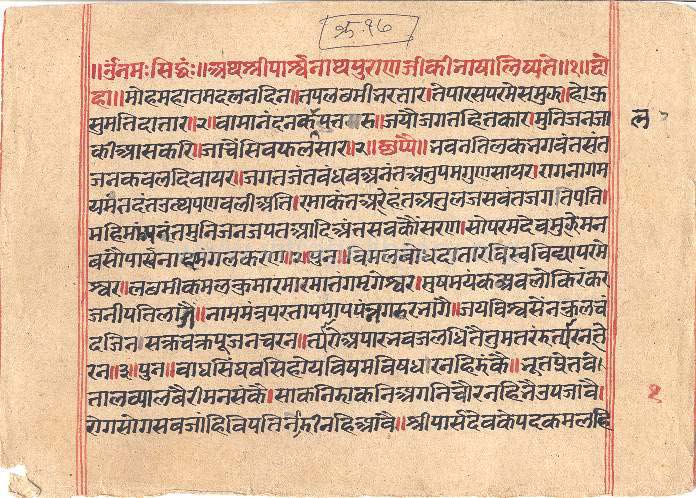 क्र. १७
॥र्उनमःसिद्धं॥अथश्रीपार्श्वनाथपुराणजीकीभाषालिष्यते॥१॥दो
हा॥मोहमहातमदलनदिन॥तपलक्ष्मीभरतार॥तेपारसपरमेसमुझ॥होऊ
सुमतिदातार॥२॥वामानंदनकल्पतरु॥जयौजगतहितकार॥मुनिजनजा
ल
कीआसकरि॥जाचैंसिवफलसार॥२॥छप्पै॥भवनतिलकभगवंतसंत
जनकवलदिवायर॥जगतजंतबंधवअनंतअनुपमगुणसायर॥रागनागम
यमंतदंतउत्थपणवलीअति॥रमाकंतअरहंतअतुलजसवंतजगतिपति॥
महिमांमुनिजनजपतआदिअंतसवकौंसरण॥सोपरमदेवमुझमन
बसौपार्सनाथमंगलकरण॥३॥पुनः॥विमलबोधदातारविस्वविद्यापरमे
श्वर॥लक्ष्मीकमलकुमारमारमातंगमृगेश्वर॥मुषमयंकअवलोकिरंकर
जनीपतिलाजै॥नाममंत्रपरतापपापपंन्नगडरभाजै॥जयविश्वसेनकुलचं
दजिनसक्रचक्रपूजनचरन॥तारोअपारभवजलधितैतुमतरंडतारनत
रन॥३॥पुनः॥बाघसिंघबसिहोयविषमविषधरनहिडंकै॥भूतप्रेतवे
तालव्यालबैरीमनसंकै॥साकनिडाकनिअगनिचौरनहिभैउपजावै॥
१
रोगसोगसबजांहिविपतिनेडीनहिआंवै॥श्रीपार्सदेवकेपदकमलहि